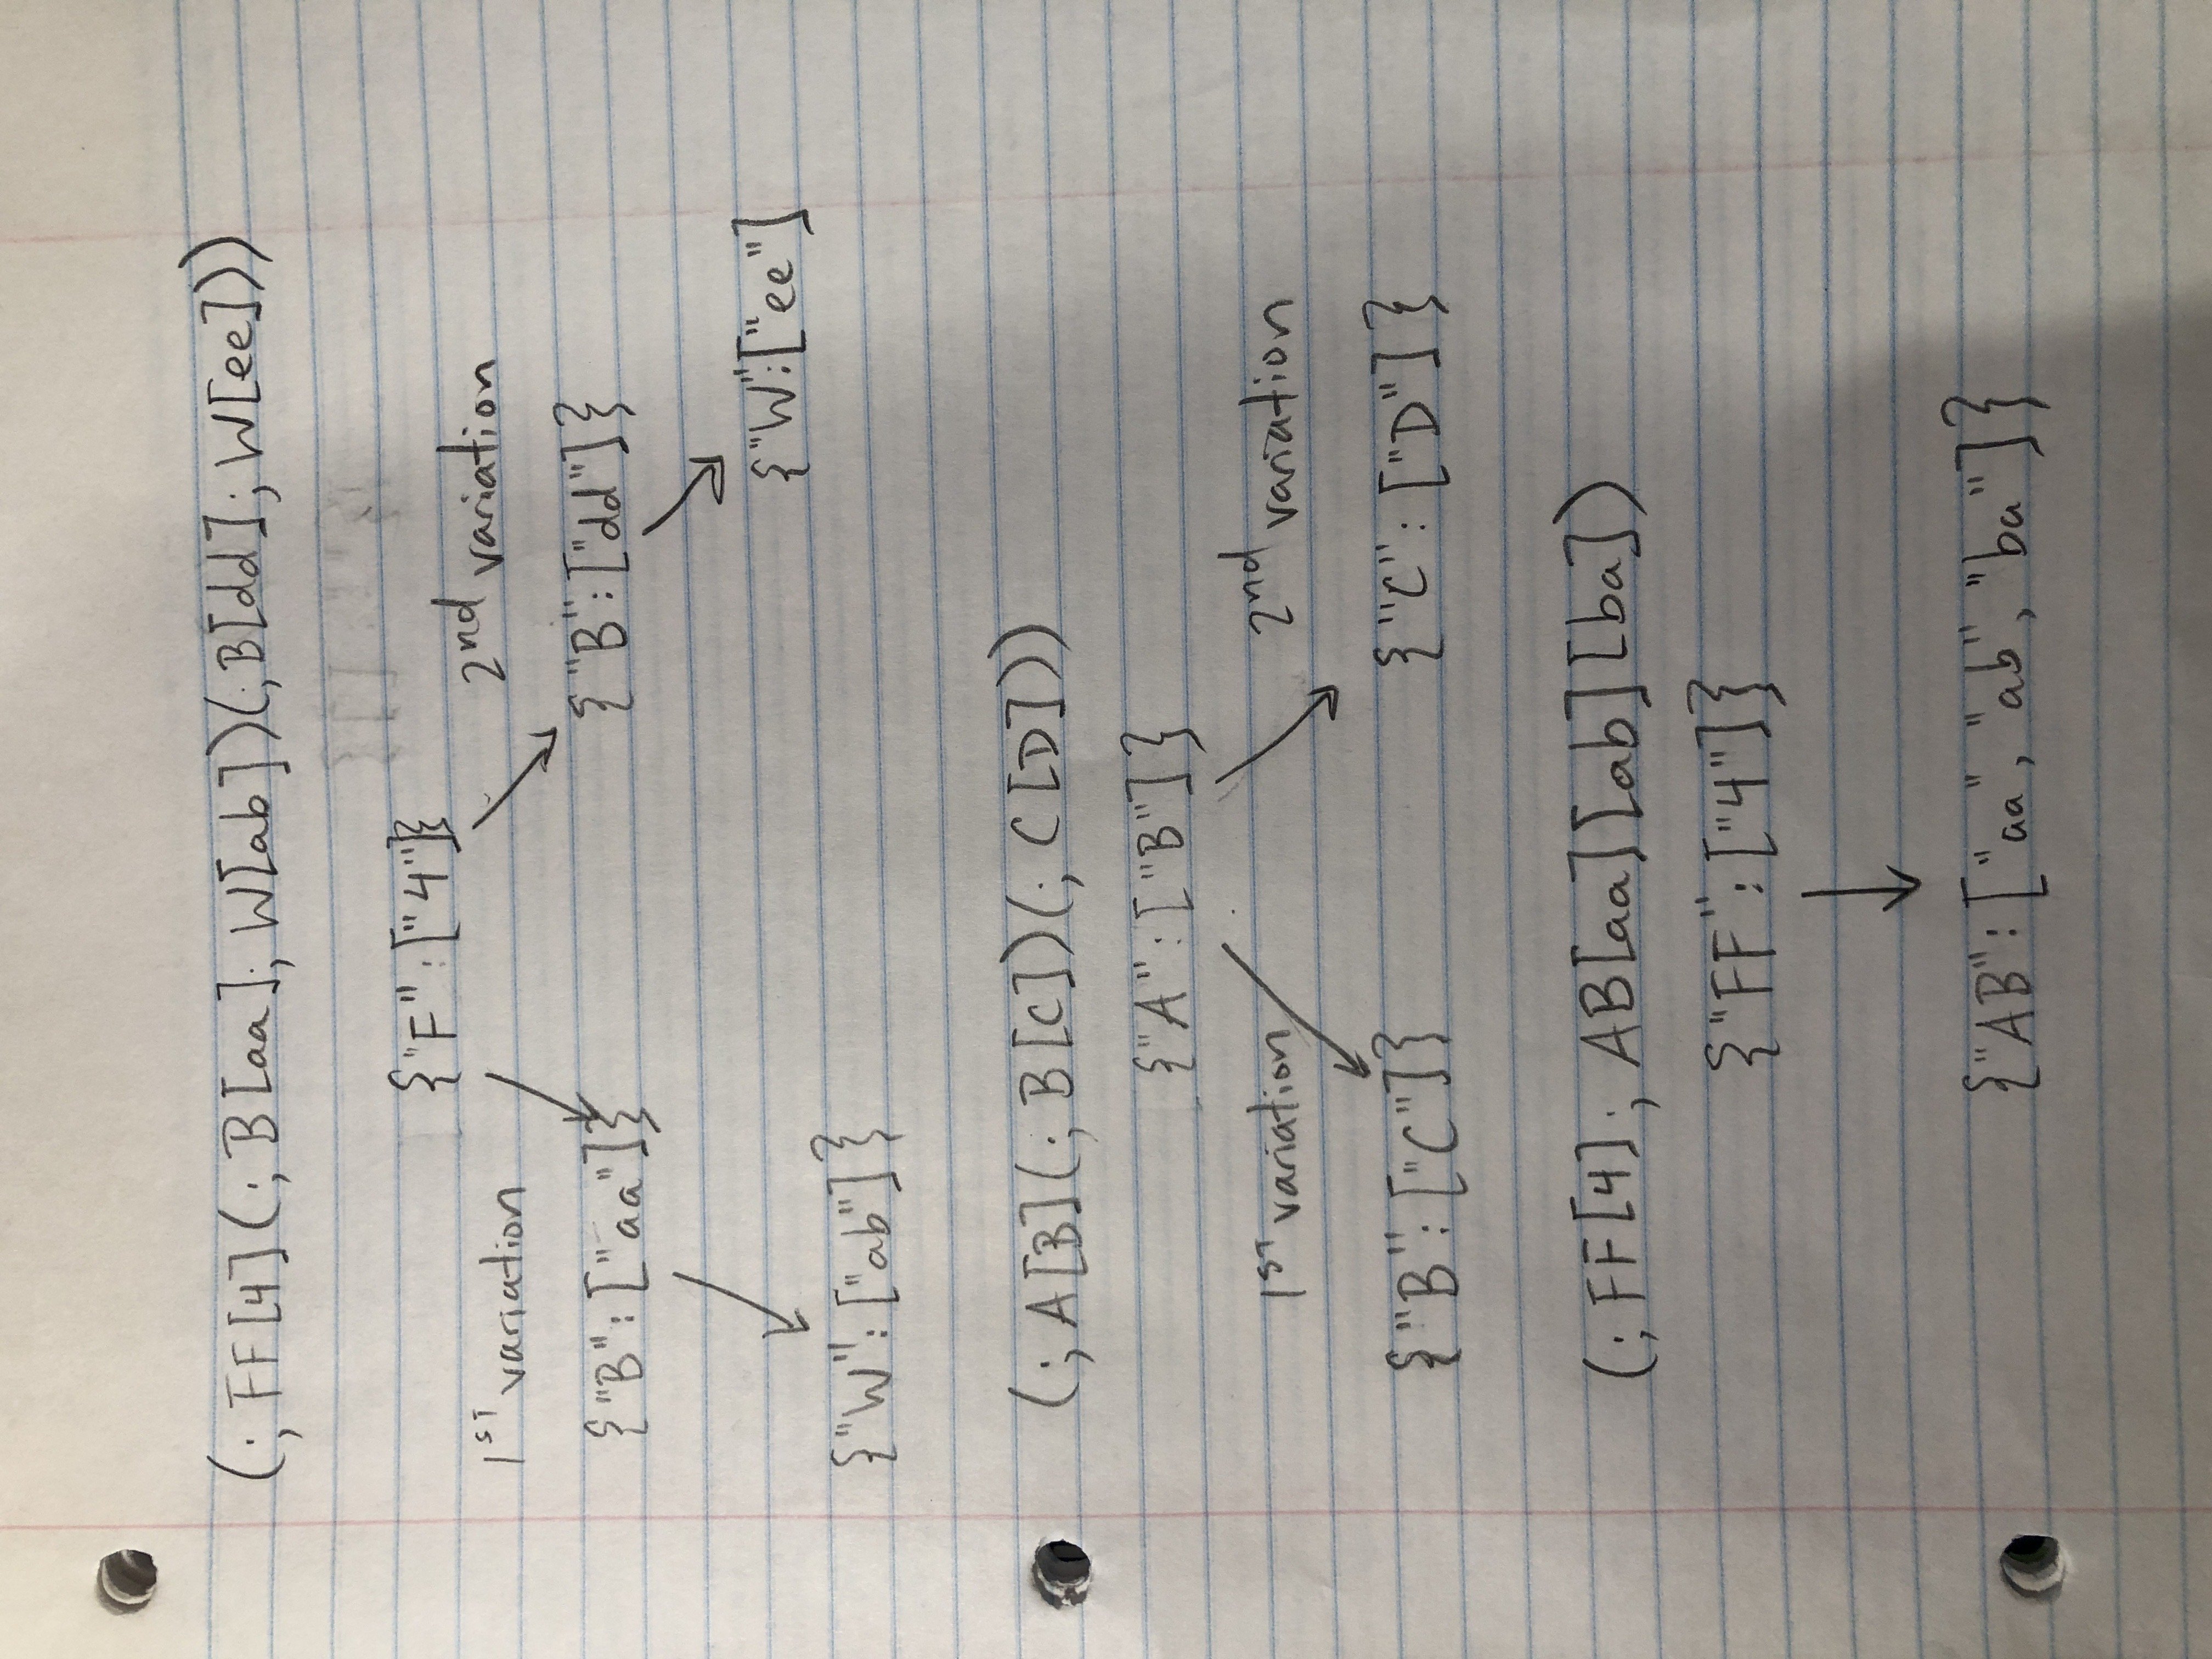 (; FF[4](; B[aa]; W[ab])(;B[dd]; W[ee]))
{"F":["4"]}
1ST variation
2nd variation
{"B":["aa"]}
{"B":["dd"]}
{"W":["ee"]
{"W":["ab"]}
(; A[B](; B[C])(; C[D]))
{"A":["B"]}
1ST variation
2nd variation
{"B":["C"]}
{"C":["D"]}
(; FF[4]; AB[aa][ab][ba])
{"FF":["4"]}
{"AB":["aa", "ab", "ba"]}